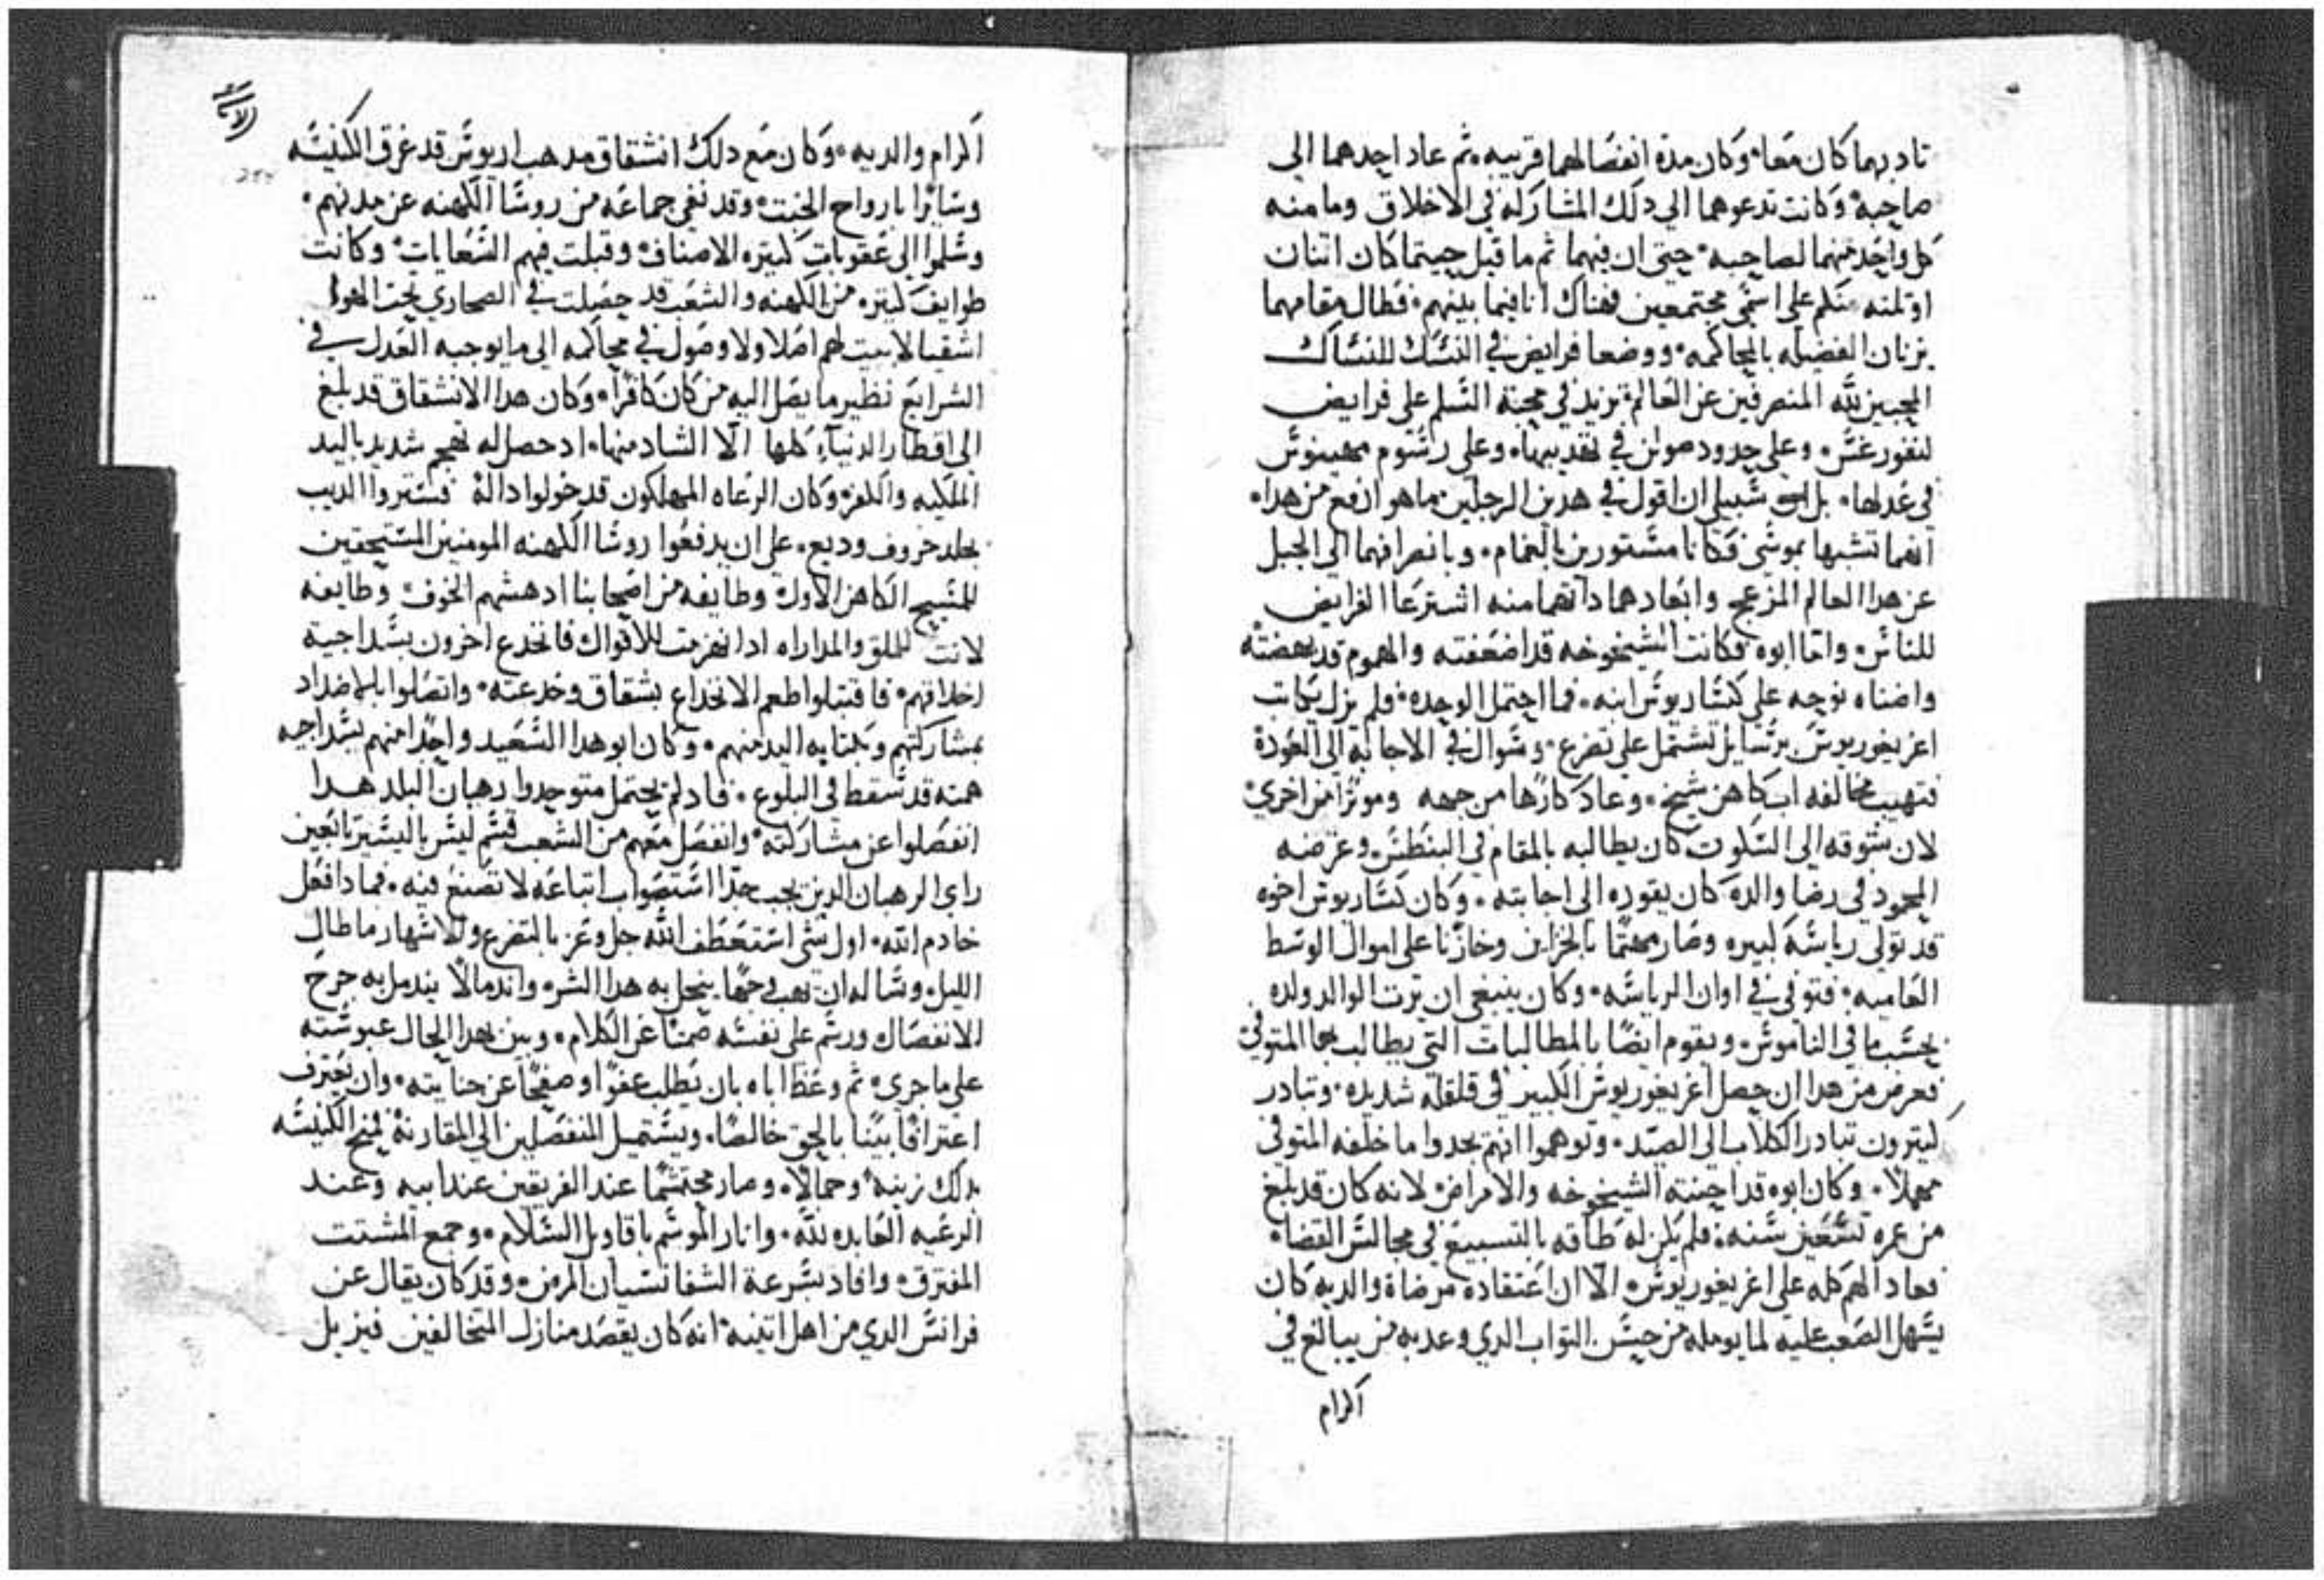 تادبهما كان معا وكان مدة انفصالهما قريبه ثم عاد احدهما الى
صاحبه وكانت تدعوهما الي دلك المشاركه في الاخلاق وما منه
كل واحد منهما لصاحبه حيتي ان فيهما تم ما قيل حيتما كان اتنان
او تلته متكلم على اسمي مجتمعين فهناك انا فيما بينهم فطال مقامهما
يزنان الفضيله بالمحاكمه ووضعا فرايض في النسك للنساك
المحبين لله المنصرفين عن العالم تزيد في محبة السلم على فرايض
لنقورغس وعلي حدود صولن في تهديبها وعلى رسوم مهينوس
في عدلها بل سبيلي ان اقول في هدين الرجلين ما هو ارفع من هدا
انهما تشبها بموسي فكانا مستورين بالغمام وبانصرافهما الي الجبل
عن هدا العالم المزعج وابعادهما داتهما منه اشترعا الفرايض
للناس واما ابوه فكانت الشيخوخه قد اضعفته والهموم قد بهضته
واضناه نوحه على كساريوس ابنه فما احتمل الوحده فلم يزل يكاتب
اغريغوريوس برسايل تشتمل علي تضرع وسوال في الاجابه الي العودة
فتهيب مخالفه اب كاهن شيخ وعاد كارها من جهه وموترا من اخري
لان شوقه الي السكوت كان يطالبه بالمقام في البنطس وغرضه
المحمود في رضا والده كان يقوده الى اجابته وكان كساريوس اخوه
قد تولي رياسة كبيره وصار مهتما بالخزاين وخازنا على اموال الوسط
العاميه فتوفي في اوان الرياسه وكان ينبغي ان يرت الوالد ولده
بحسب ما في الناموس ويقوم ايضا بالمطالبات التي يطالب بها المتوفي
فعرض من هدا ان حصل اغريغوريوس الكبير في قلقله شديده وتبادر
كتيرون تبادر الكلاب الى الصيد وتوهموا انهم يجدوا ما خلفه المتوفي
مهملا وكان ابوه قد احنته الشيخوخه والامراض لانه كان قد بلغ
من عمره تسعين سنه فلم يكن له طاقه بالتسبيغ في مجالس القضاه
فعاد الهم كله علي اغريغوريوس الا ان اعتقاده مرضاة والديه كان
يسهل الصعب عليه لما يومله من حسن التواب الدي وعد به من يبالغ في
اكرام
اكرام والديه وكان مع دلك انشقاق مدهب اريوس قد غرق الكنيسه
وسايرا بارواح الخبت وقد نفي جماعه من روسا الكهنه عن مدنهم
وسلموا الى عقوبات كتيره الاصناف وقبلت فيهم السعايات وكانت
طوايف كتيره من الكهنه والشعب قد حصلت في الصحاري تحت الهوا
اشقيا لا بيت لهم اصلا ولا وصول في محاكمه الى ما يوجبه العدل في
الشرايع نظير ما يصل اليه من كان كافرا وكان هدا الانشقاق قد بلغ
الي اقطار الدنيا كلها الا الشاد منها اد حصل له تهجم شديد باليد
الملكيه والكفر وكان الرعاه المهلكون قد خولوا دالة فستروا الديب
بجلد خروف وديع على ان يدفعوا روسا الكهنه المومنين المستحقين
للمسيح الكاهن الاول وطايفه من اصحابنا ادهشهم الخوف وطايفه
لانت للملق والمداراه ادا انهزمت للاقوال فانخدع اخرون بسداجية
اخلاقهم فاقتبلوا طعم الانخداع بشقاق وخدعته واتصلوا بالاضداد
بمشاركتهم وبكتابه اليد منهم وكان ابو هدا السعيد واحدا منهم بسداجيه
همته قد سقط في البلوع فاد لم يحتمل متوحدوا رهبان البلد هدا
انفصلوا عن مشاركته وانفصل معهم من الشعب قسم ليس باليسير تابعين
راي الرهبان الدين يجب جدا استصواب اتباعه لا تصنع فيه فمادا فعل
خادم الله اول شي استعطف الله جل وعز بالتضرع والاسهار ما طال
الليل وساله ان يهب فهما ينحل به هدا الشر واندمالا يندمل به جرح
الانفصال ورسم على نفسه صمتا عن الكلام وبين بهدا الحال عبوسته
علي ما جري تم وعظ اباه بان يطلب عفوا وصفحا عن جنايته وان يعترف
اعترافا بينا بالحق خالصا ويستميل المنفصلين الي المقارنة لمنح الكنيسه
بدلك زينه وجمالا وصار محتشما عند الفريقين عند ابيه وعند
الرعيه العابده لله وانار الموسم باقاويل السلام وجمع المشتت
المفترق وافاد بسرعة الشفا نسيان المرض وقد كان يقال عن
فرانس الدي من اهل اتينه انه كان يقصد منازل المتخالفين فيزيل